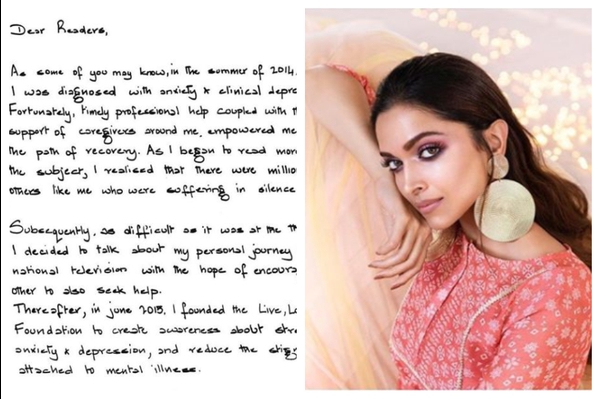 Dear Readers,
As some of you may know, in the summer of 2014.
I was diagnosed with anxiety & clinical depre
Fortunately, timely professional help coupled with
support of caregivers around me, empowered me
the path of recovery. As I began to read mor
the subject, I realised that there were millio
others like me who were suffering in silence
Subsequently, as difficult as it was at the
I decided to talk about my personal journey
national television with the hope of encoura
other to also seek help.
Thereafter, in june 2015, I founded the Live, L
Foundation to create awareness about stre
anxiety & depression, and reduce the stig
attached to mental illness.